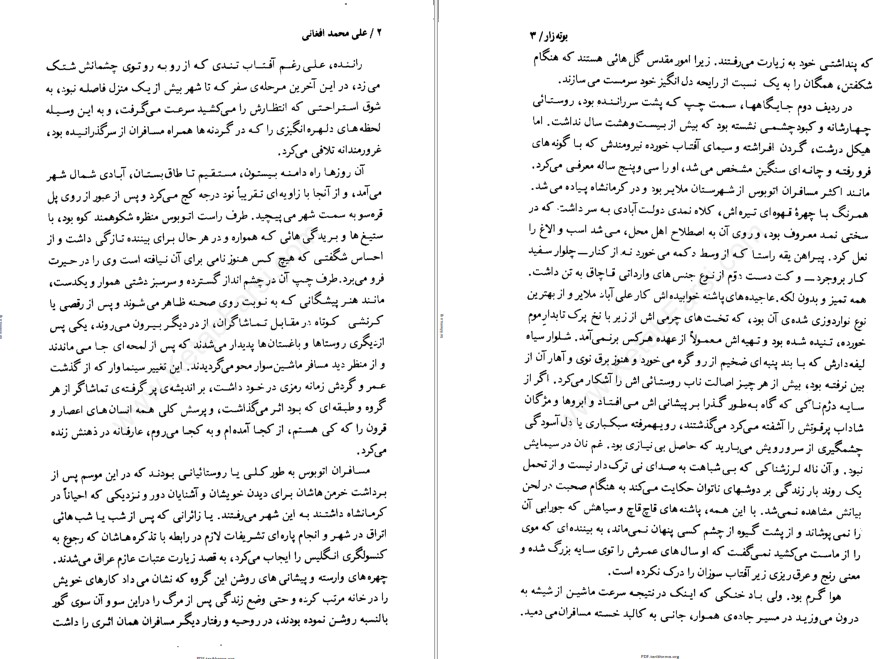 ۲ / علی محمد افغانی
راننده، علی رغم آفتاب تندی که از روبه روتوی چشمانش شتک
می زد، در این آخرین مرحله‌ی سفر که تا شهر بیش از یک منزل فاصله نبود، به
شوق استراحتی که انتظارش را می‌کشید سرعت می‌گرفت، و به این وسیله
لحظه های دلهره انگیزی را که در گردنه ها همراه مسافران از سرگذرانیده بود،
غرورمندانه تلافی می‌کرد.
آن روزها راه دامنه بیستون، مستقیم تا طاق‌بستان، آبادی شمال شهر
می‌آمد، و از آنجا با زاویه‌ای تقریباً نود درجه کج می‌کرد و پس از عبور از روی پل
قره‌سو به سمت شهر می‌پیچید. طرف راست اتوبوس منظره شکوهمند کوه بود، با
ستیغ ها و بریدگی هائی که همواره و در هر حال برای بیننده تازگی داشت و از
احساس شگفتی که هیچ کس هنوز نامی برای آن نیافته است وی را در حیرت
فرو می‌برد. طرف چپ آن در چشم انداز گسترده و سرسبز دشتی هموار و یکدست،
مانند هنرپیشگانی که به نوبت روی صحنه ظاهر می‌شوند و پس از رقصی یا
کرنشی کوتاه در مقابل تماشاگران، از در دیگر بیرون می‌روند، یکی پس
از دیگری روستاها و باغستان‌ها پدیدار می‌شدند که پس از لمحه‌ای جا می ماندند
و از منظر دید مسافر ماشین سوار محو می‌گردیدند. این تغییر سینماوار که از گذشت
عمر و گردش زمانه رمزی در خود داشت، بر اندیشه‌ی پر گرفته‌ی تماشاگر از هر
گروه و طبقه‌ای که بود اثر می‌گذاشت، و پرسش کلی همه انسان های اعصار و
قرون را که کی هستم، از کجا آمده ام و به کجا می‌روم، عارفانه در ذهنش زنده
می‌کرد.
مسافران اتوبوس به طور کلی یا روستائیانی بودند که در این موسم پس از
برداشت خرمن هاشان برای دیدن خویشان و آشنایان دور و نزدیکی که احیاناً در
کرمانشاه داشتند به این شهر می‌رفتند. یا زائرانی که پس از شب یا شب هائی
اتراق در شهر و انجام پاره‌ای تشریفات لازم در رابطه با تذکره هاشان که رجوع به
کنسولگری انگلیس را ایجاب می‌کرد، به قصد زیارت عتبات عازم عراق می‌شدند.
چهره‌های وارسته و پیشانی های روشن این گروه که نشان می داد کارهای خویش
را در خانه مرتب کرده و حتی وضع زندگی پس از مرگ را در این سو و آن سوی گور
بالنسبه روشن نموده بودند، در روحیه و رفتار دیگر مسافران همان اثری را داشت
بوته زار / ۳
که پنداشتی خود به زیارت می‌رفتند. زیرا امور مقدس گل هائی هستند که هنگام
شکفتن، همگان را به یک نسبت از رایحه دل انگیز خود سرمست می سازند.
در ردیف دوم جایگاهها، سمت چپ که پشت سر راننده بود، روستائی
چهارشانه و کبودچشمی نشسته بود که بیش از بیست‌وهشت سال نداشت. اما
هیکل درشت، گردن افراشته و سیمای آفتاب خورده نیرومندش که با گونه های
فرو رفته و چانه‌ای سنگین مشخص می شد، او را سی و پنج ساله معرفی می‌کرد.
مانند اکثر مسافران اتوبوس از شهرستان ملایر بود و در کرمانشاه پیاده می شد.
همرنگ با چهرۀ قهوه‌ای تیره‌اش، کلاه نمدی دولت آبادی به سر داشت که در
سختی نمد معروف بود، و روی آن به اصطلاح اهل محل، می‌شد اسب و الاغ را
نعل کرد. پیراهن یقه راستا که از وسط دکمه می خورد نه از کنار ــ چلوار سفید
کار بروجرد ــ و کت دست دوّم از نوع جنس های وارداتی قاچاق به تن داشت.
همه تمیز و بدون لکه. عاجیده‌های پاشنه خوابیده‌اش کار علی آباد ملایر و از بهترین
نوع نواردوزی شده‌ی آن بود، که تخت های چرمی اش از زیر با نخ پرک تابدار موم
خورده، تنیده شده بود و تهیه‌اش معمولاً از عهده هرکس برنمی‌آمد. شلوار سیاه
لیفه‌دارش که با بند پنبه‌ای ضخیم از رو گره می خورد و هنوز برق نوی و آهار آن از
بین نرفته بود، بیش از هر چیز اصالت ناب روستائی اش را آشکار می‌کرد. اگر از
سایه دژم ناکی که گاه به‌طور گذرا بر پیشانی اش می‌افتاد و ابروها و مژگان
شاداب پرقوتش را آشفته می‌کرد می‌گذشتند، رویهمرفته سبکباری یا دل آسودگی
چشمگیری از سر و رویش می‌بارید که حاصل بی نیازی بود. غم نان در سیمایش
نبود. و آن ناله لرزشناکی که بی شباهت به صدای نی ترک دار نیست و از تحمل
یک روند بار زندگی بر دوشهای ناتوان حکایت می‌کند به هنگام صحبت در لحن
بیانش مشاهده نمی‌شد. با این همه، پاشنه های قاچ قاچ و سیاهش که جورابی آن
را نمی پوشاند و از پشت گیوه از چشم کسی پنهان نمی‌ماند، به بیننده‌ای که موی
را از ماست می‌کشید نمی‌گفت که او سال های عمرش را توی سایه بزرگ شده و
معنی رنج و عرق ریزی زیر آفتاب سوزان را درک نکرده است.
هوا گرم بود. ولی باد خنکی که اینک در نتیجه سرعت ماشین از شیشه به
درون می‌وزید در مسیر جاده‌ی هموار، جانی به کالبد خسته مسافران می دمید.